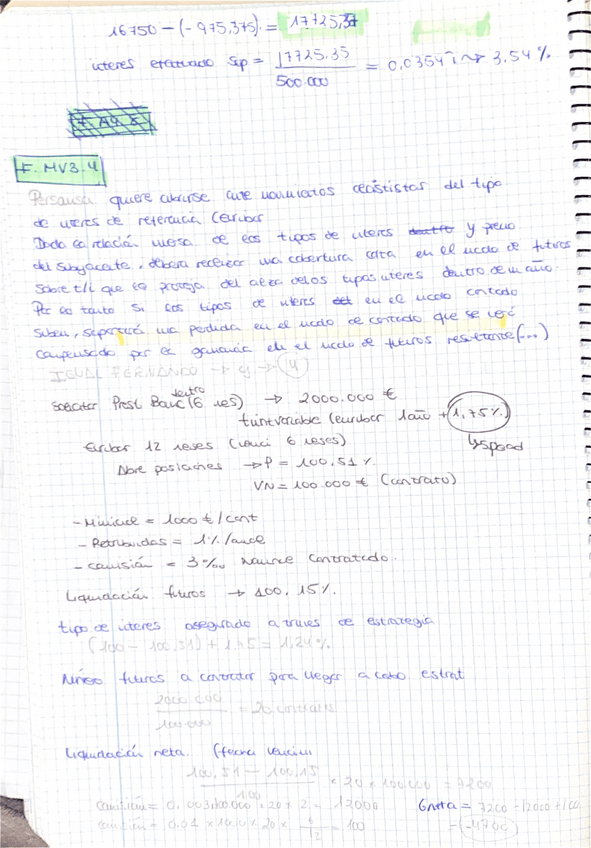 16750 - (-975,375). = 17725,37
interes efectuado Sup = 17725.35 / 500.000 = 0,03545 → 3.54 %
F. MV3.4
Persausa quiere cubrirse ante movimientos del tipo
de interes de referencia (euribor
Dada la relación inversa de los tipos de interes y precio
del subyacente, deberá realizar una cobertura corta en el mcdo de futuros
sobre t/i que la proteja del alza de los tipos interes dentro de un año.
Por lo tanto si los tipos de interes en el mcdo contado
suben, soportará una perdida en el mcdo de contado que se verá
compensado por la ganancia en el mcdo de futuros resultante (...)
IGUAL FERNANDO → ej → 4
Solicitar Prest Banc (6 meses) dentro → 2000.000 €
tint variable (euribor 1 año + 1,75%)
↳ spread
Euribor 12 meses (venci 6 meses)
Abre posiciones → P = 100,51 %
VN = 100.000 € (contrato)
- = 1000 € / cont
- Retribuidas = 1% /
- Comisión = 3‰ contratado.
Liquidación futuros → 100.15%.
tipo de interes asegurado a traves de estrategia
(100 - 100,51) + 1,75 = 1,24 %
Número futuros a contratar para llegar a cabo estrat
2000.000 / 100.000 = 20 contratos
Liquidación neta. (fecha vencim
100,51 - 100,15 / 100 × 20 × 100.000 = 7200
Comisión = 0.003 × 100.000 × 20 × 2 = 12000
comisión = 0.01 × 1000 × 20 × 6/12 = 100
Gneta = 7200 - 12000 + 100
= (-4700)